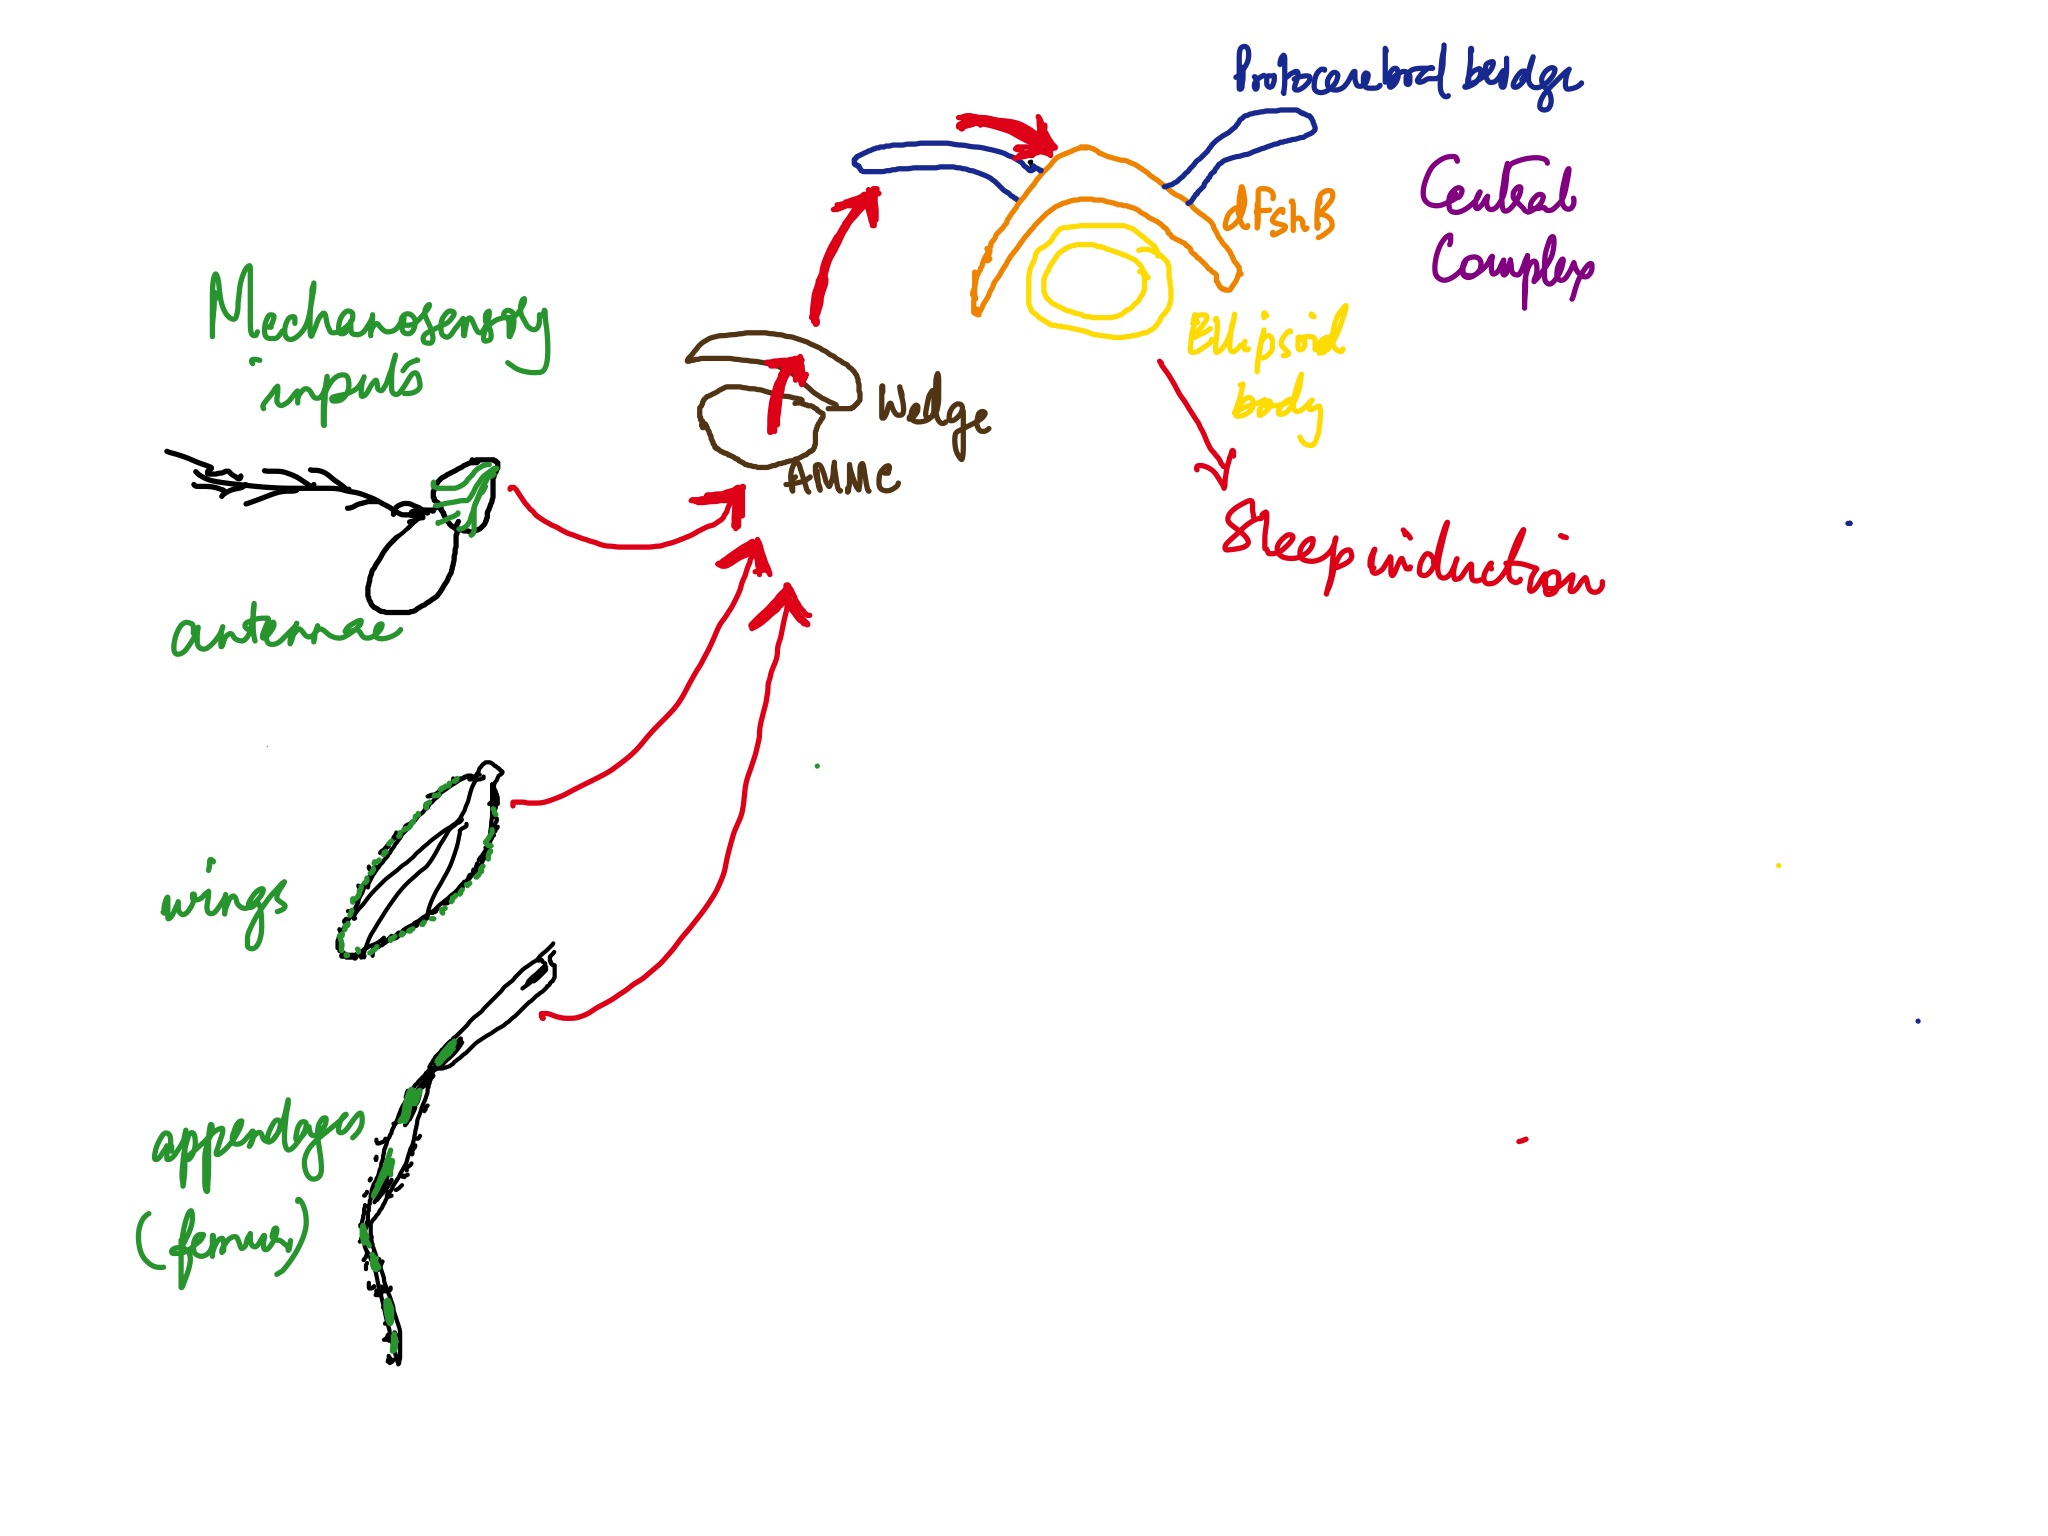 Protocerebral bridge
dFshB
Central
Complex
Ellipsoid
body
Mechanosensory
inputs
Wedge
AMMC
Sleep induction
antennae
wings
appendages
(femur)